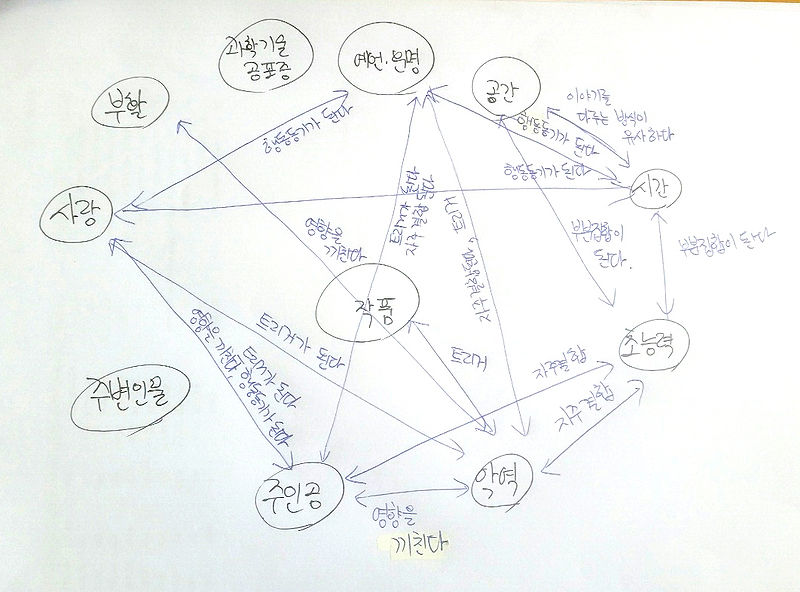 과학기술
공포증
예언·운명
공간
부활
이야기를
다루는 방식이
유사하다
행동동기가 된다
행동동기가 된다
행동동기가 된다
시간
사랑
트리거가 된다
자주 결합 된다
트리거,
자주결합됨
영향을
끼친다
부분집합이
된다.
부분집합이 된다
작품
초능력
트리거가 된다
트리거
자주결합
자주 결합
주변인물
트리거가 된다
영향을 끼친다, 행동동기가 된다
주인공
악역
영향을
끼친다